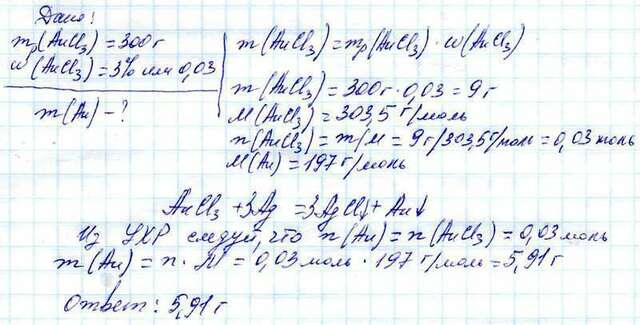 Дано:
mр(AuCl3) = 300г
w(AuCl3) = 3% или 0,03
m(Au) - ?
m(AuCl3) = mр(AuCl3) · w(AuCl3)
m(AuCl3) = 300г · 0,03 = 9г
M(AuCl3) = 303,5 г/моль
n(AuCl3) = m/M = 9г/303,5г/моль = 0,03 моль
M(Au) = 197 г/моль
AuCl3 + 3Ag = 3AgCl↓ + Au↓
Из УХР следует, что n(Au) = n(AuCl3) = 0,03 моль
m(Au) = n · M = 0,03 моль · 197 г/моль = 5,91г
Ответ: 5,91г